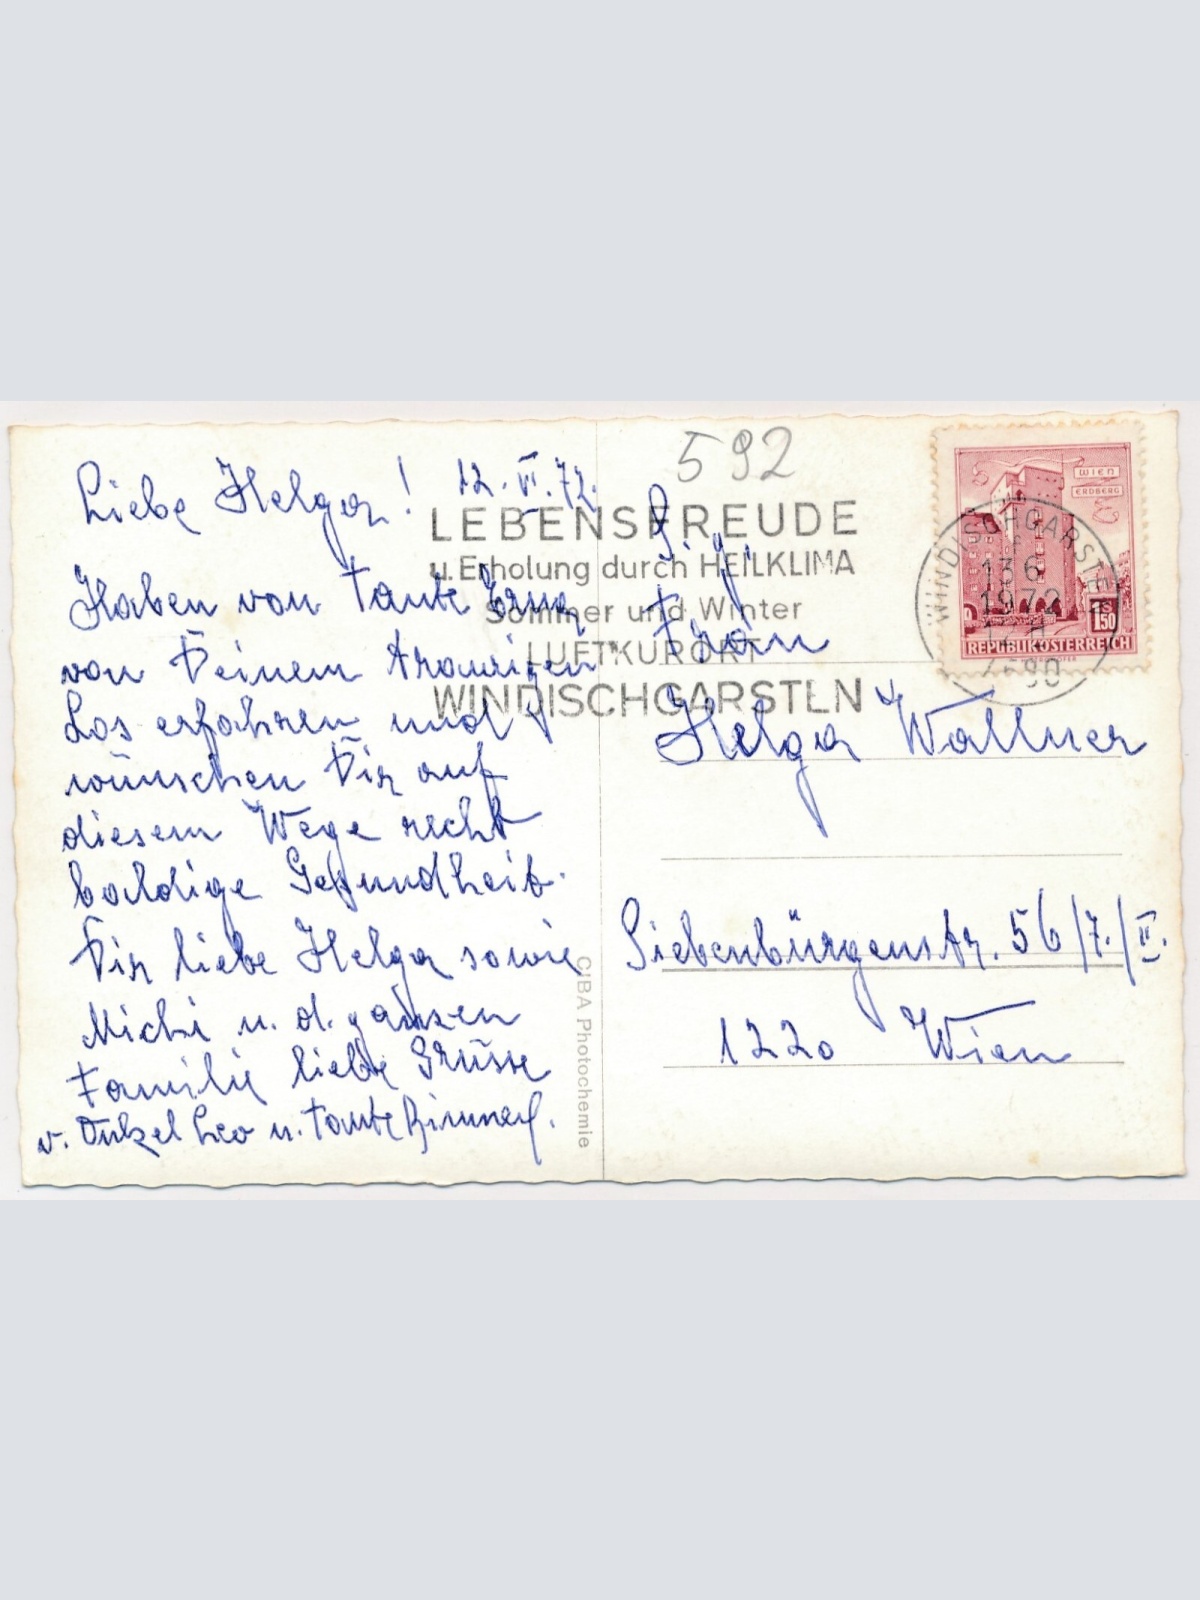 Liebe Helga! 12.VI.72.
Haben von Tante Erna
von Deinem traurigen
Los erfahren und
wünschen Dir auf
diesem Wege recht
baldige Gesundheit.
Dir liebe Helga sowie
Michi u. d. ganzen
Familie liebe Grüsse
v. Onkel Leo u. Tante
CIBA Photochemie
592
LEBENSFREUDE
u. Erholung durch HEILKLIMA
Sommer und Winter
LUFTKURORT
WINDISCHGARSTEN
WIEN
ERDBERG
S 1.50
REPUBLIK ÖSTERREICH
WINDISCHGARSTEN
13 6
1972
4580
Fräu
Helga Wallner
Siebenbürgenstr. 56/7./II.
1220 Wien